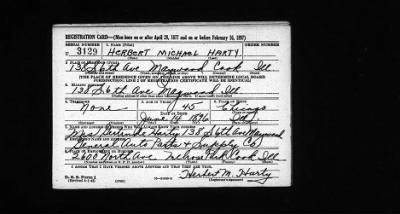 REGISTRATION CARD—(Men born on or after April 28, 1877 and on or before February 16, 1897)
SERIAL NUMBER 1. NAME (Print) ORDER NUMBER
U 3129 HERBERT MICHAEL HARTY
2. PLACE OF RESIDENCE (Print)
138 S 6th Ave Maywood Cook Ill.
[THE PLACE OF RESIDENCE GIVEN ON THE LINE ABOVE WILL DETERMINE LOCAL BOARD
JURISDICTION; LINE 2 OF REGISTRATION CERTIFICATE WILL BE IDENTICAL]
3. MAILING ADDRESS
138 S 6th Ave Maywood Ill
4. TELEPHONE 5. AGE IN YEARS 6. PLACE OF BIRTH
None 45 Chicago
DATE OF BIRTH
June 14 1896 Ill.
7. NAME AND ADDRESS OF PERSON WHO WILL ALWAYS KNOW YOUR ADDRESS
Mrs Harty 138 S 6th Ave Maywood
8. EMPLOYER'S NAME AND ADDRESS
General Auto Parts & Supply Co
9. PLACE OF EMPLOYMENT OR BUSINESS
2600 North Ave Melrose Park Cook Ill.
I AFFIRM THAT I HAVE VERIFIED ABOVE ANSWERS AND THAT THEY ARE TRUE.
D. S. S. Form 1
Herbert M. Harty